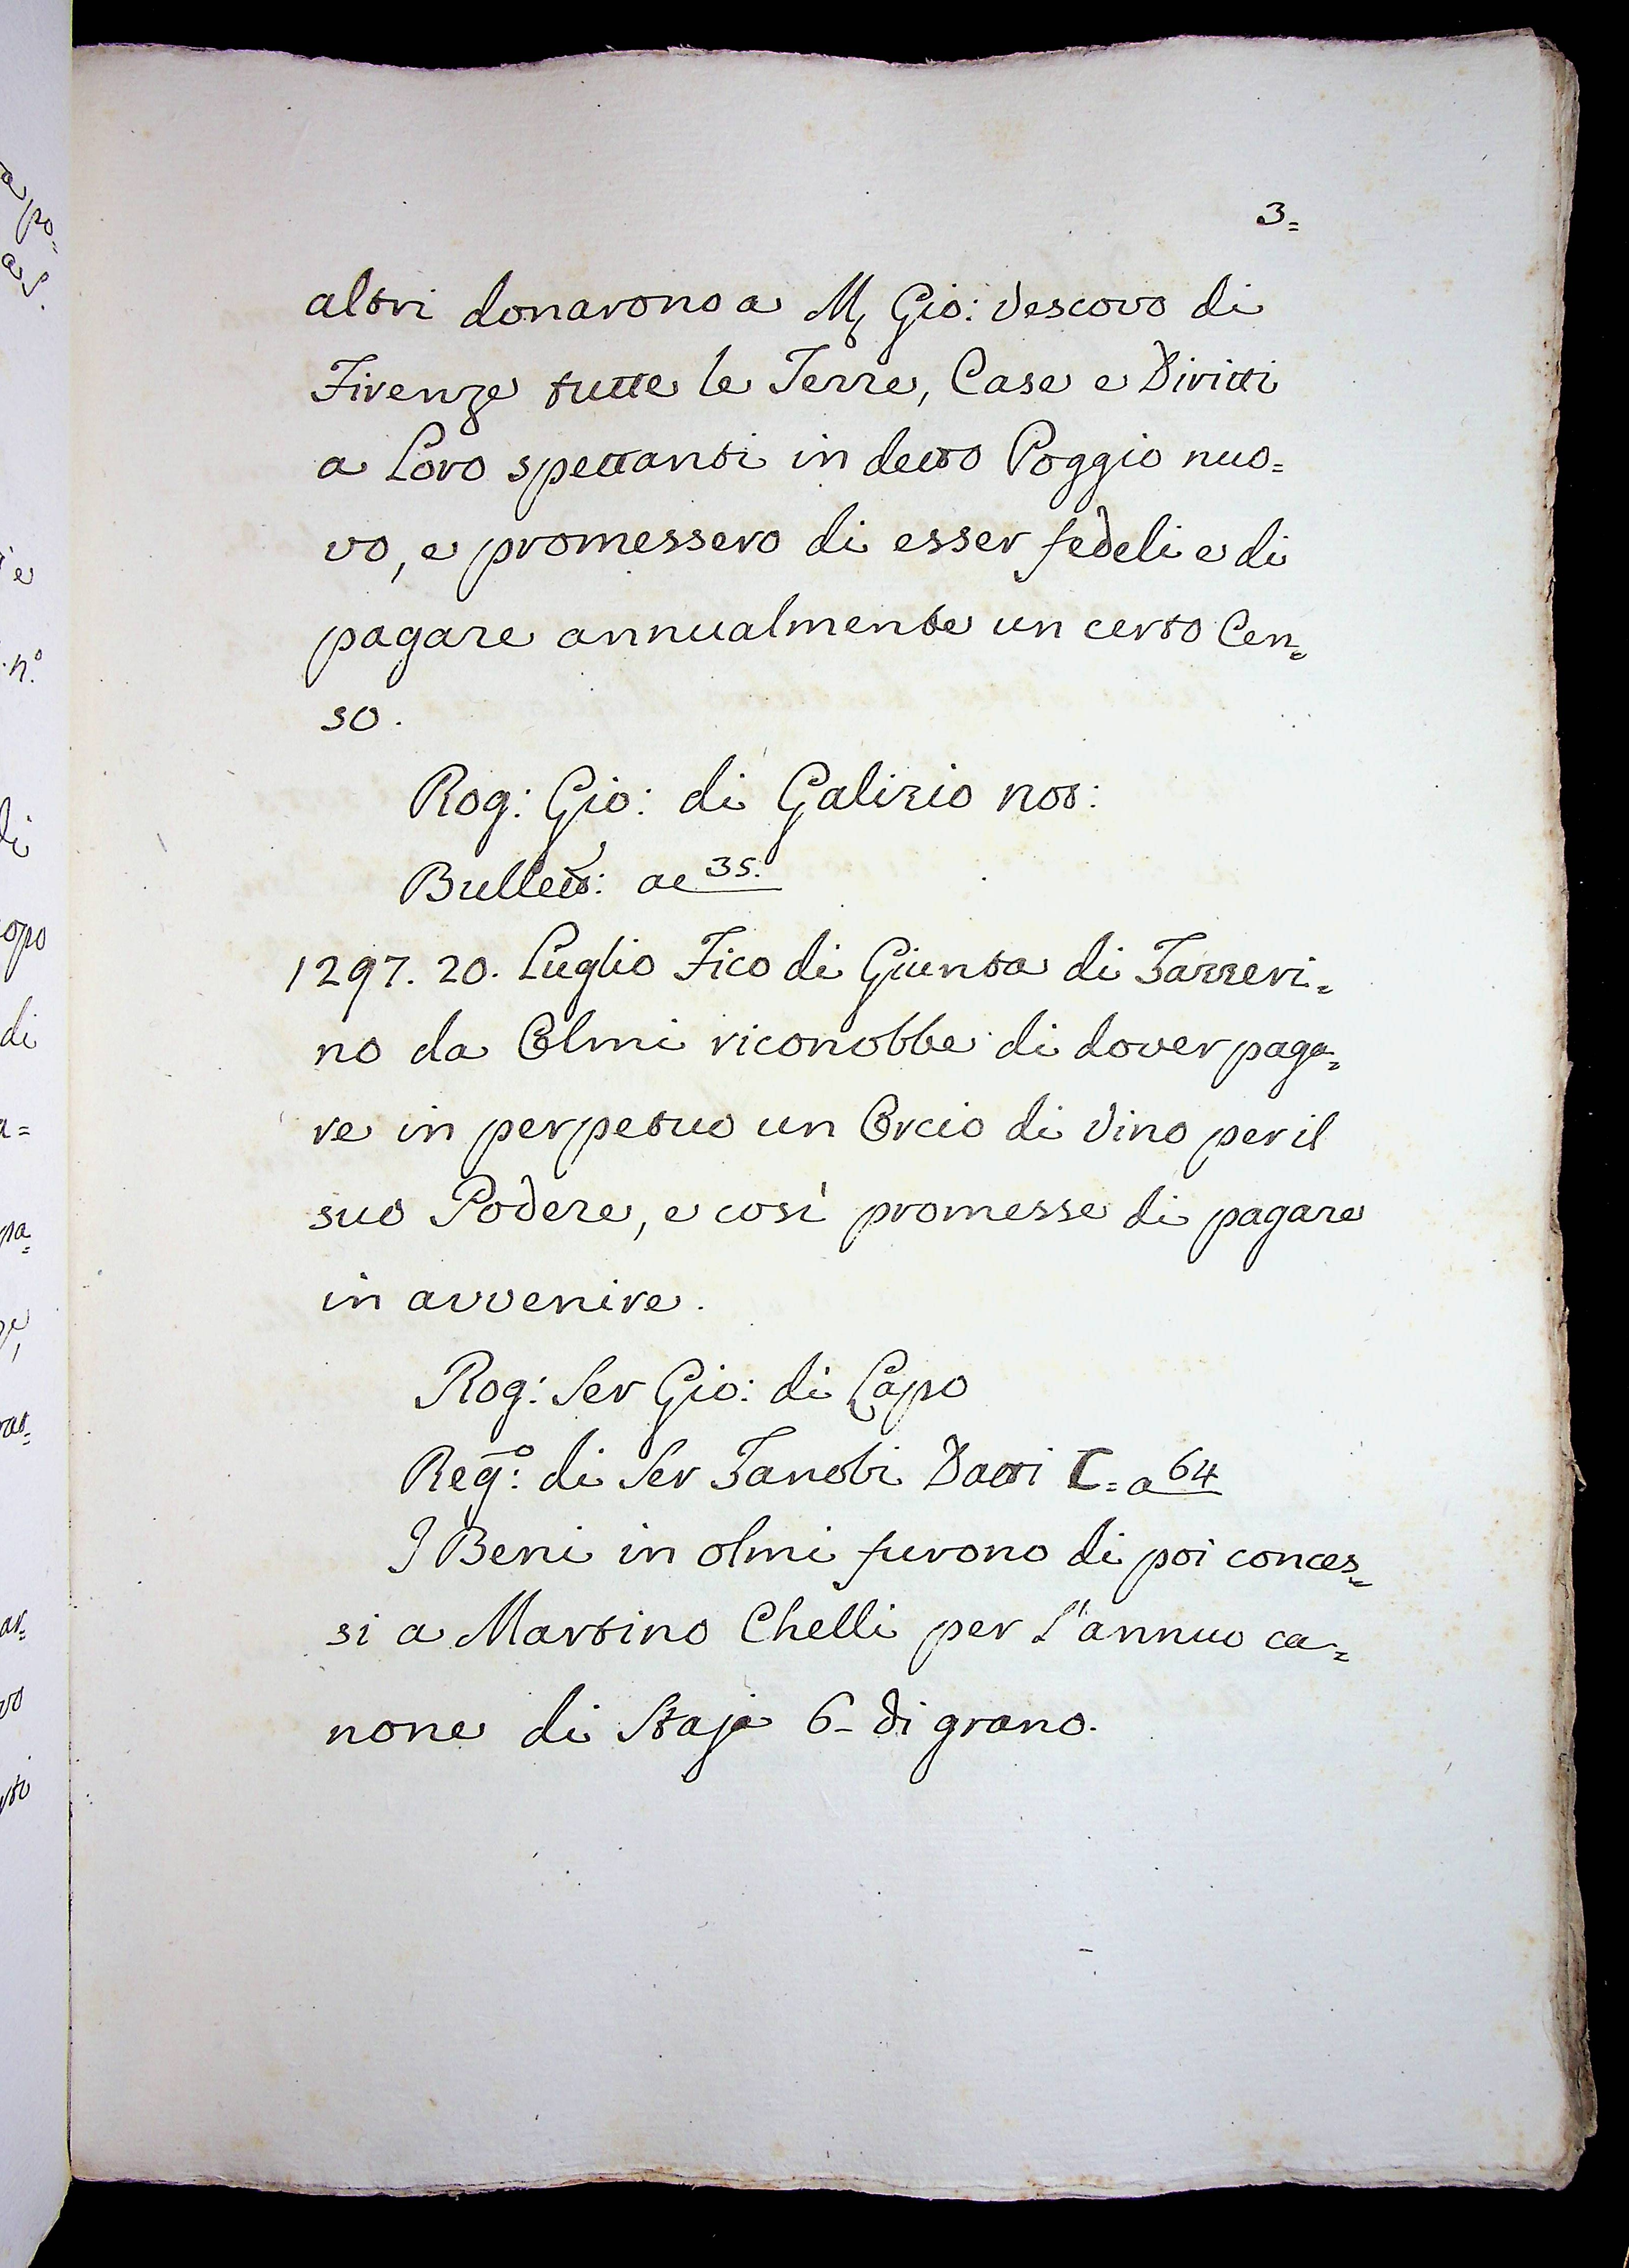 3=
altri donarono a M, Gio: Vescovo di
Firenze tutte le Terre, Case e Diritti
a Loro spettanti in detto Poggio nuo=
vo, e promessero di esser fedeli e di
pagare annualmente un certo Cen=
so.
Rog: Gio: di Galizio not:
Bullett: ac 35.
1297. 20. Luglio Fico di Giunta di Zazzeri=
no da Olmi riconobbe di dover paga=
re in perpetuo un Orcio di Vino per il
suo Podere, e così promesse di pagare
in avvenire.
Rog: Ser Gio: di Lapo
Reg.º: di Ser Zanobi Datti C= a 64
I Beni in olmi furono di poi conces=
si a Martino Chelli per l'annuo ca=
none di Staja 6- di grano.